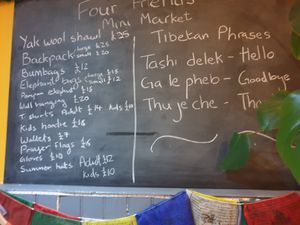 Four Friends
Mini Market
Yak wool shawl £25
Backpack large £25
small £20
Bumbags £12
Elephant bags large £15
small £12
elephant £15
Wall hanging £20
T. shirts Adult £14 Kids £10
Kids hoodie £16
Wallets £7
Prayer Flags £6
Gloves £10
Summer hats Adult £12
Kids £10
Tibetan Phrases
Tashi delek - Hello
Ga le pheb - Goodbye
Thu je che - Tha